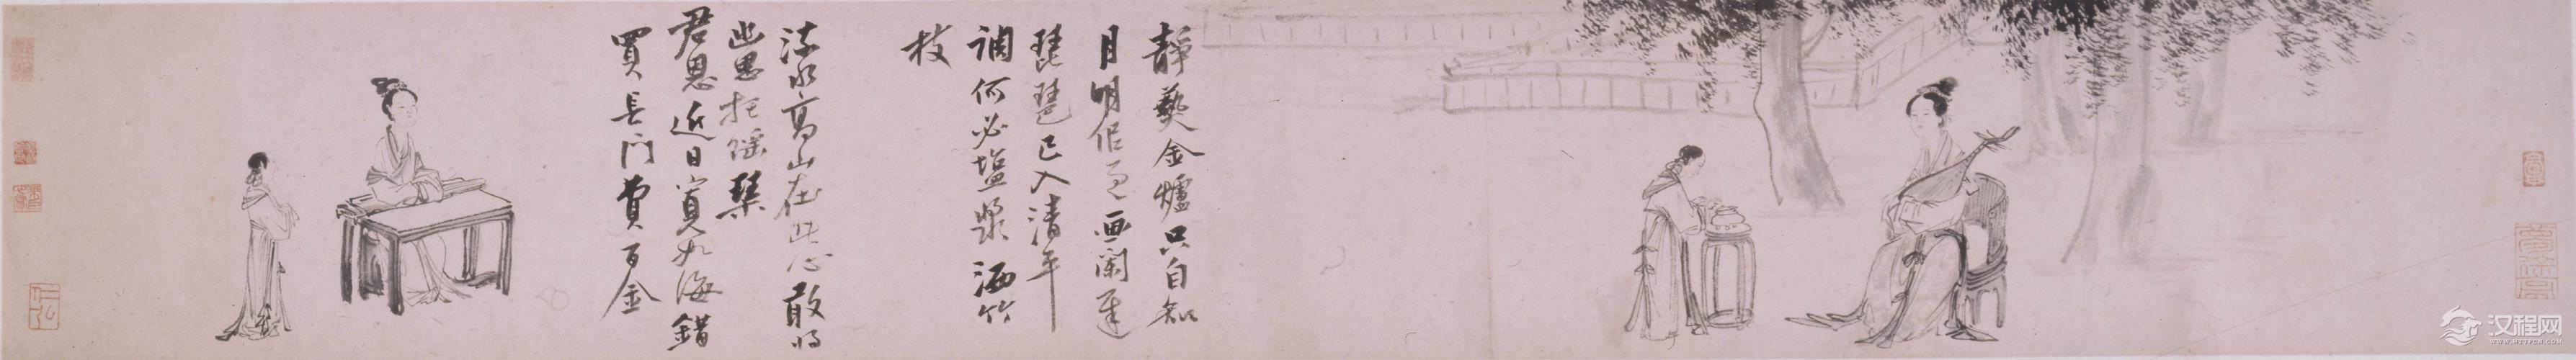 靜爇金爐只自知
月明画闌遲
琵琶已入清平
調何必塩漿洒竹
枝
流水高山在此心敢將
幽思托瑤琴
君恩近日寬如海錯
買長門費百金
汉程网
WWW.HTTPCN.COM